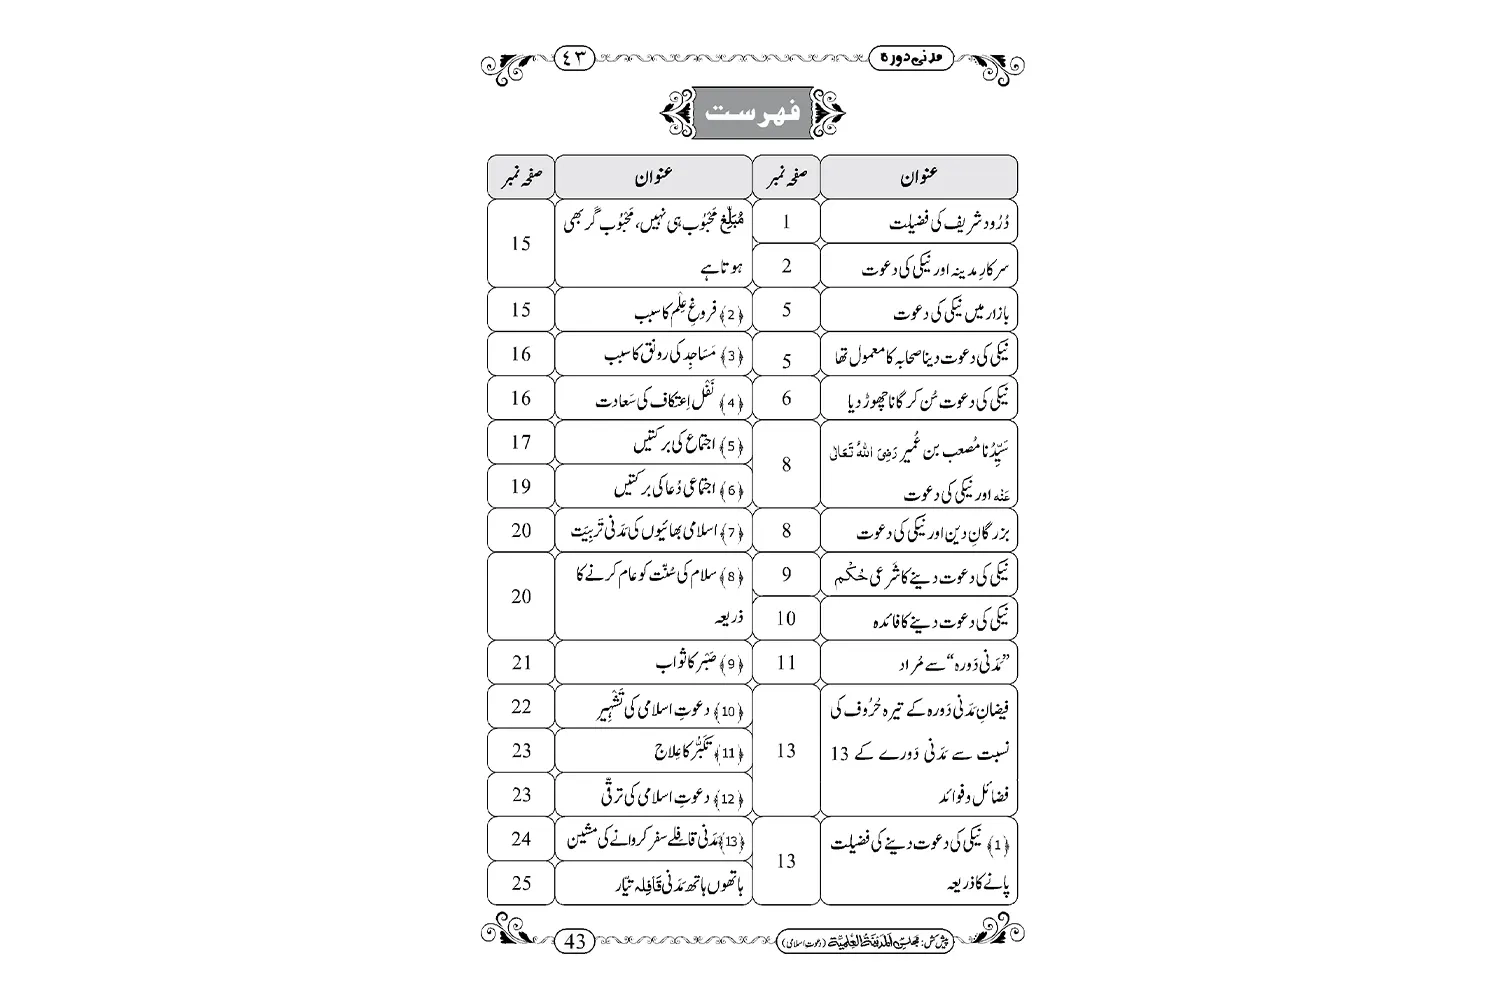 مدنی دورہ
٤٣
فہرست
عنوان
صفحہ نمبر
عنوان
صفحہ نمبر
دُرُود شریف کی فضیلت
1
سرکارِ مدینہ اور نیکی کی دعوت
2
بازار میں نیکی کی دعوت
5
نیکی کی دعوت دینا صحابہ کا معمول تھا
5
نیکی کی دعوت سُن کر گانا چھوڑ دیا
6
سَیِّدُنا مُصعب بن عُمیر رَضِیَ اللہُ تَعَالٰی
عَنْہ اور نیکی کی دعوت
8
بزرگانِ دین اور نیکی کی دعوت
8
نیکی کی دعوت دینے کا شَرعی حُکْم
9
نیکی کی دعوت دینے کا فائدہ
10
”مَدَنی دَورہ“ سے مُراد
11
فیضانِ مَدَنی دَورہ کے تیرہ حُرُوف کی
نسبت سے مَدَنی دَورے کے 13
فضائل و فوائد
13
﴿1﴾ نیکی کی دعوت دینے کی فضیلت
پانے کا ذریعہ
13
مُبَلِّغ مَحْبُوب ہی نہیں، مَحْبُوب گر بھی
ہوتا ہے
15
﴿2﴾ فروغِ عِلْم کا سبب
15
﴿3﴾ مَسَاجِد کی رونق کا سبب
16
﴿4﴾ نَفْل اِعتکاف کی سَعادت
16
﴿5﴾ اجتماع کی برکتیں
17
﴿6﴾ اجتماعی دُعا کی برکتیں
19
﴿7﴾ اسلامی بھائیوں کی مَدَنی تَربِیَت
20
﴿8﴾ سلام کی سُنّت کو عام کرنے کا
ذریعہ
20
﴿9﴾ صَبْر کا ثواب
21
﴿10﴾ دعوتِ اسلامی کی تَشْہِیر
22
﴿11﴾ تَکَبُّر کا عِلاج
23
﴿12﴾ دعوتِ اسلامی کی ترقّی
23
﴿13﴾ مَدَنی قافلے سفر کروانے کی مشین
24
ہاتھوں ہاتھ مَدَنی قَافِلہ تیّار
25
پیش کش: مجلس اَلْمَدِیْنَۃُ الْعِلْمِیَّۃ (دعوتِ اسلامی)
43